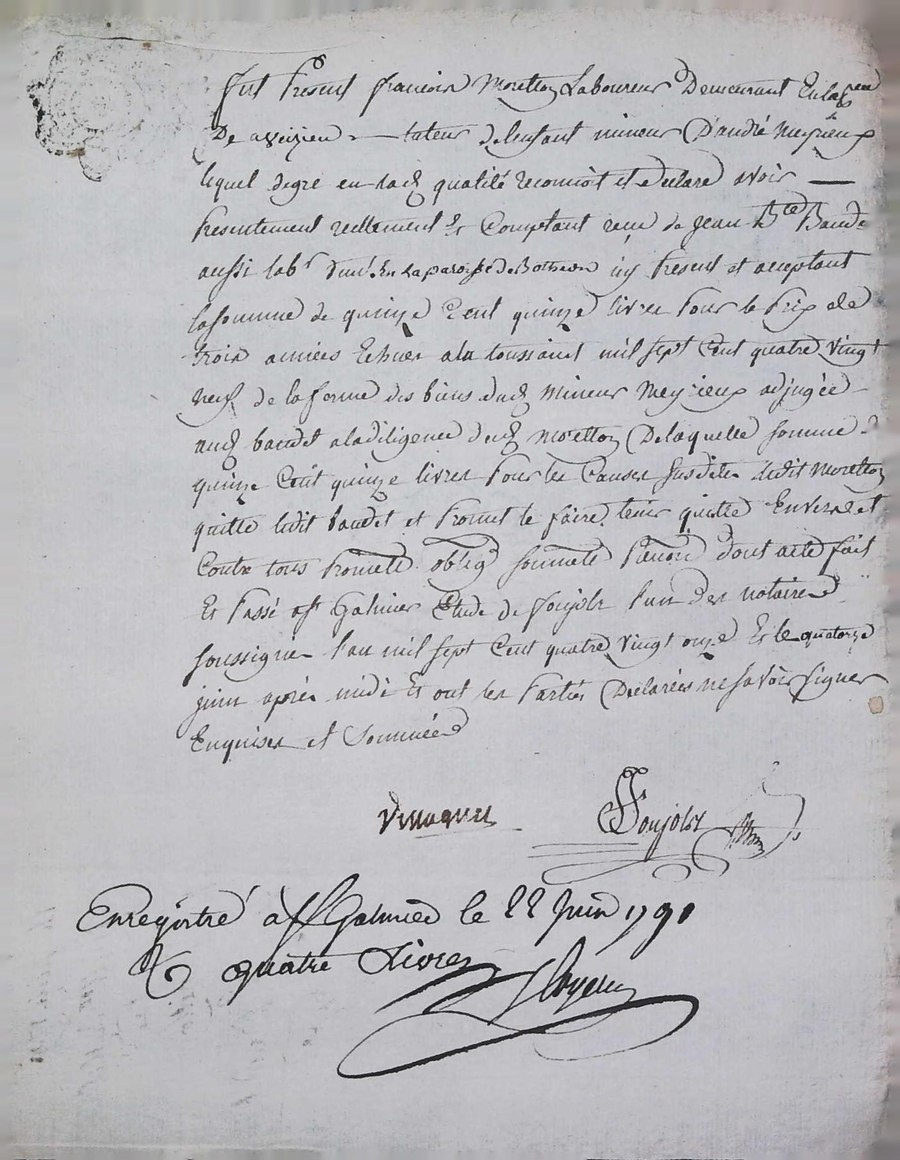 fut présent françois Moretton Laboureur Demeurant En la psse
De aveizieu tuteur de lenfant mineur D'andré Meyrieux
lequel de gré en sad. qualité reconnoit et declare avoir
Presentement reellement et Comptant reçu de Jean Bte Baudet
aussi labr En La paroisse de Botheon icy Présent et acceptant
la somme de quinze Cent quinze livres Pour le Prix de
trois années Echues a la toussaint mil sept Cent quatre vingt
neuf de la ferme des biens dud. mineur Meyrieux adjugée
aud. baudet a la diligence dud. Moretton De laquelle somme de
quinze Cent quinze livres Pour les Causes susdites ledit Moretton
quitte ledit baudet et Promet le faire tenir quitte Envers et
Contre tous Promets. oblig. dont acte fait
Et Passé a st Galmier Etude de Soujols l'un des notaires
soussignes l'an mil sept Cent quatre vingt onze Et le quatorze
juin après midi Et ont les Parties Déclarées ne savoir signer
Enquises et Sommées
Soujols
Enregistré à st Galmier le 22 Juin 1791
quatre Livres